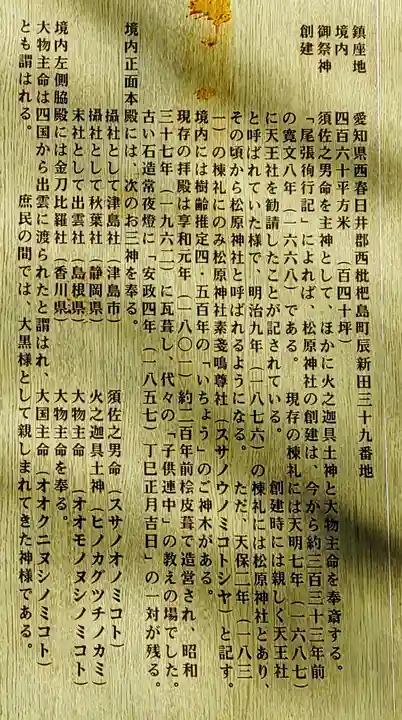 鎮座地　愛知県西春日井郡西枇杷島町辰新田三十九番地
境内　四百六十平方米　（百四十坪）
御祭神　須佐之男命を主神として、ほかに火之迦具土神と大物主命を奉斎する。
創建　「尾張徇行記」によれば、松原神社の創建は、今から約三百三十三年前
の寛文八年（一六六八）である。　現存の棟札には天明七年（一六八七）
に天王社を勧請したことが記されている。　創建時には親しく天王社
と呼ばれていた様で、明治九年（一八七六）の棟札には松原神社とあり、
その頃から松原神社と呼ばれるようになる。　ただ、天保二年（一八三
一）の棟札にのみ松原神社素戔嗚尊社（スサノウノミコトシヤ）と記す。
境内には樹齢推定四・五百年の「いちょう」のご神木がある。
現存の拝殿は享和元年（一八〇一）約二百年前桧皮葺で造営され、昭和
三十七年（一九六二）に瓦葺し、代々の「子供連中」の教えの場でした。
古い石造常夜燈に「安政四年（一八五七）丁巳正月吉日」の一対が残る。
境内正面本殿には、次のお三神を奉る。
摂社として津島社（津島市）　須佐之男命（スサノオノミコト）
摂社として秋葉社（静岡県）　火之迦具土神（ヒノカグツチノカミ）
末社として出雲社（島根県）　大物主命（オオモノヌシノミコト）
境内左側脇殿には金刀比羅社（香川県）　大物主命を奉る。
大物主命は四国から出雲に渡られたと謂はれ、大国主命（オオクニヌシノミコト）
とも謂はれる。　庶民の間では、大黒様として親しまれてきた神様である。